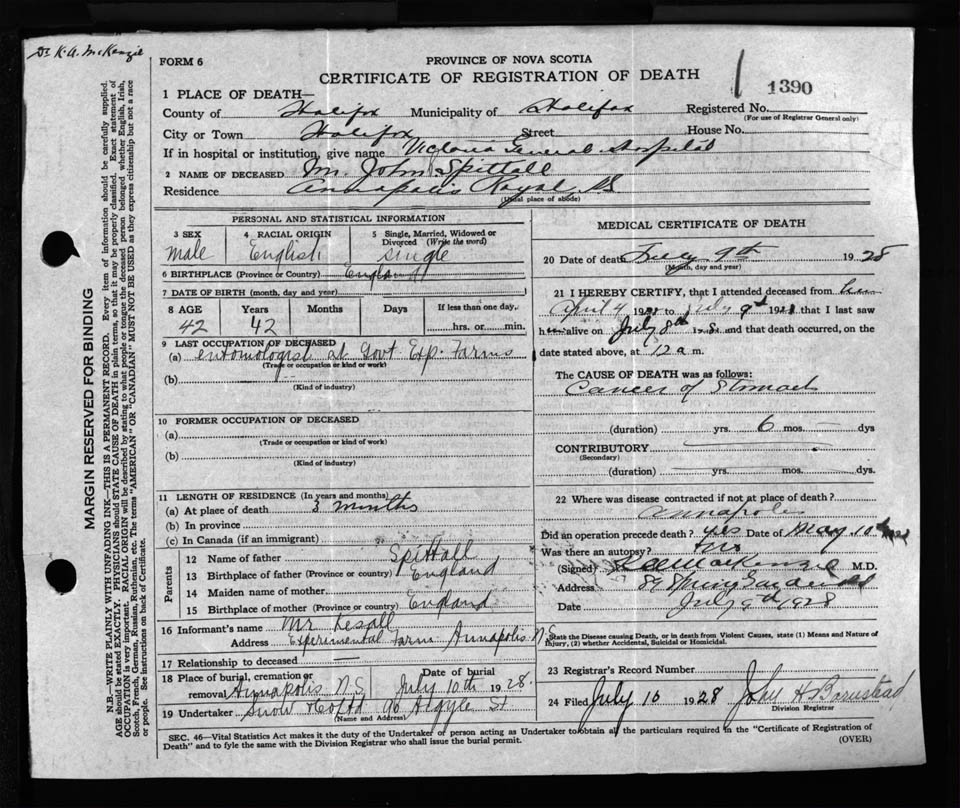 Dr K. A. McKenzie
FORM 6
PROVINCE OF NOVA SCOTIA
CERTIFICATE OF REGISTRATION OF DEATH
1 1390
1 PLACE OF DEATH—
County of Halifax Municipality of Halifax Registered No.
(For use of Registrar General only)
City or Town Halifax Street House No.
If in hospital or institution, give name Victoria General Hospital
2 NAME OF DECEASED Mr. John Spittall
Residence Annapolis Royal, NS
(Usual place of abode)
PERSONAL AND STATISTICAL INFORMATION
3 SEX 4 RACIAL ORIGIN 5 Single, Married, Widowed or Divorced (Write the word)
Male English Single
6 BIRTHPLACE (Province or Country) England
7 DATE OF BIRTH (month, day and year)
8 AGE Years Months Days If less than one day,
42 42 hrs. or min.
9 LAST OCCUPATION OF DECEASED
(a) entomologist at Govt Exp. Farms
(Trade or occupation or kind of work)
(b)
(Kind of industry)
10 FORMER OCCUPATION OF DECEASED
(a)
(Trade or occupation or kind of work)
(b)
(Kind of industry)
11 LENGTH OF RESIDENCE (In years and months)
(a) At place of death 3 months
(b) In province
(c) In Canada (if an immigrant)
Parents
12 Name of father Spittall
13 Birthplace of father (Province or Country) England
14 Maiden name of mother
15 Birthplace of mother (Province or Country) England
16 Informant's name Mr
Address Experimental Farm Annapolis N.S
17 Relationship to deceased
18 Place of burial, cremation or removal Annapolis N.S Date of burial July 10th 1928.
19 Undertaker Snow & Co Ltd 90 Argyle St
(Name and Address)
MEDICAL CERTIFICATE OF DEATH
20 Date of death July 9th 1928
(Month, day and year)
21 I HEREBY CERTIFY, that I attended deceased from
April 4 19 to July 9th 19 that I last saw
h alive on July 8th and that death occurred, on
date stated above, at 12 a m.
The CAUSE OF DEATH was as follows:
Cancer of Stomach
(duration) yrs. 6 mos. dys
CONTRIBUTORY
(Secondary)
(duration) yrs. mos. dys.
22 Where was disease contracted if not at place of death?
Annapolis
Did an operation precede death? yes Date of May 10th
Was there an autopsy? No
(Signed) K A MacKenzie M.D.
Address 89 Spring Garden Rd
Date July 9th 1928
State the Disease causing Death, or in death from Violent Causes, state (1) Means and Nature of Injury, (2) whether Accidental, Suicidal or Homicidal.
23 Registrar's Record Number
24 Filed July 10 1928 John H Barnstead
Division Registrar
SEC. 46—Vital Statistics Act makes it the duty of the Undertaker or person acting as Undertaker to obtain all the particulars required in the "Certificate of Registration of
Death" and to fyle the same with the Division Registrar who shall issue the burial permit.
(OVER)
MARGIN RESERVED FOR BINDING
N.B.—WRITE PLAINLY WITH UNFADING INK—THIS IS A PERMANENT RECORD. Every item of information should be carefully supplied.
AGE should be stated EXACTLY. PHYSICIANS should STATE CAUSE OF DEATH in plain terms, so that it may be properly classified. Exact statement of
OCCUPATION is very important. RACIAL ORIGIN will be described by stating to what people or tongue the deceased person belonged whether English, Irish,
Scotch, French, German, Russian, Ruthenian, etc. The terms "AMERICAN" or "CANADIAN" MUST NOT BE USED as they express citizenship but not a race
or people. See instructions on back of Certificate.